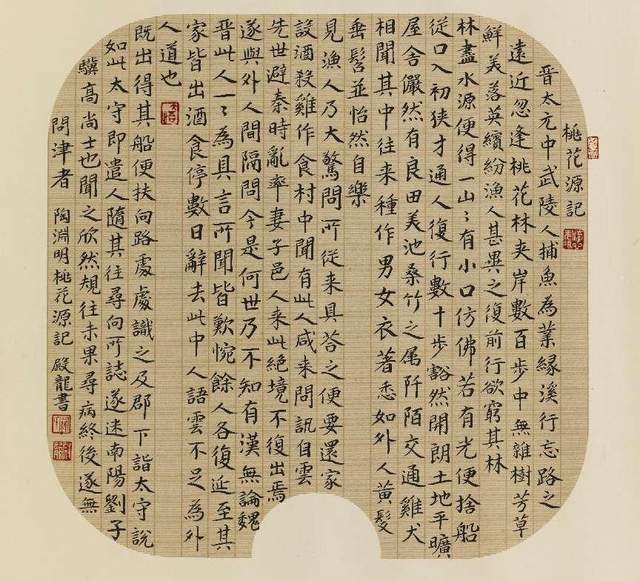 桃花源記
晋太元中武陵人捕魚為業緣溪行忘路之
遠近忽逢桃花林夾岸數百步中無雜樹芳草
鮮美落英繽紛漁人甚異之復前行欲窮其林
林盡水源便得一山〻有小口仿佛若有光便捨船
從口入初狹才通人復行數十步豁然開朗土地平曠
屋舍儼然有良田美池桑竹之属阡陌交通雞犬
相聞其中往来種作男女衣著悉如外人黃髮
垂髫並怡然自樂
見漁人乃大驚問所從来具荅之便要還家
設酒殺雞作食村中聞有此人咸来問訊自雲
先世避秦時亂率妻子邑人来此絕境不復出焉
遂與外人間隔問今是何世乃不知有漢無論魏
晋此人一〻為具言所聞皆歎惋餘人各復延至其
家皆出酒食停數日辭去此中人語雲不足為外
人道也
既出得其船便扶向路處處識之及郡下詣太守說
如此太守即遣人隨其往尋向所誌遂迷南陽劉子
驥高尚士也聞之欣然規往未果尋病終後遂無
問津者 陶淵明桃花源記 殿龍書